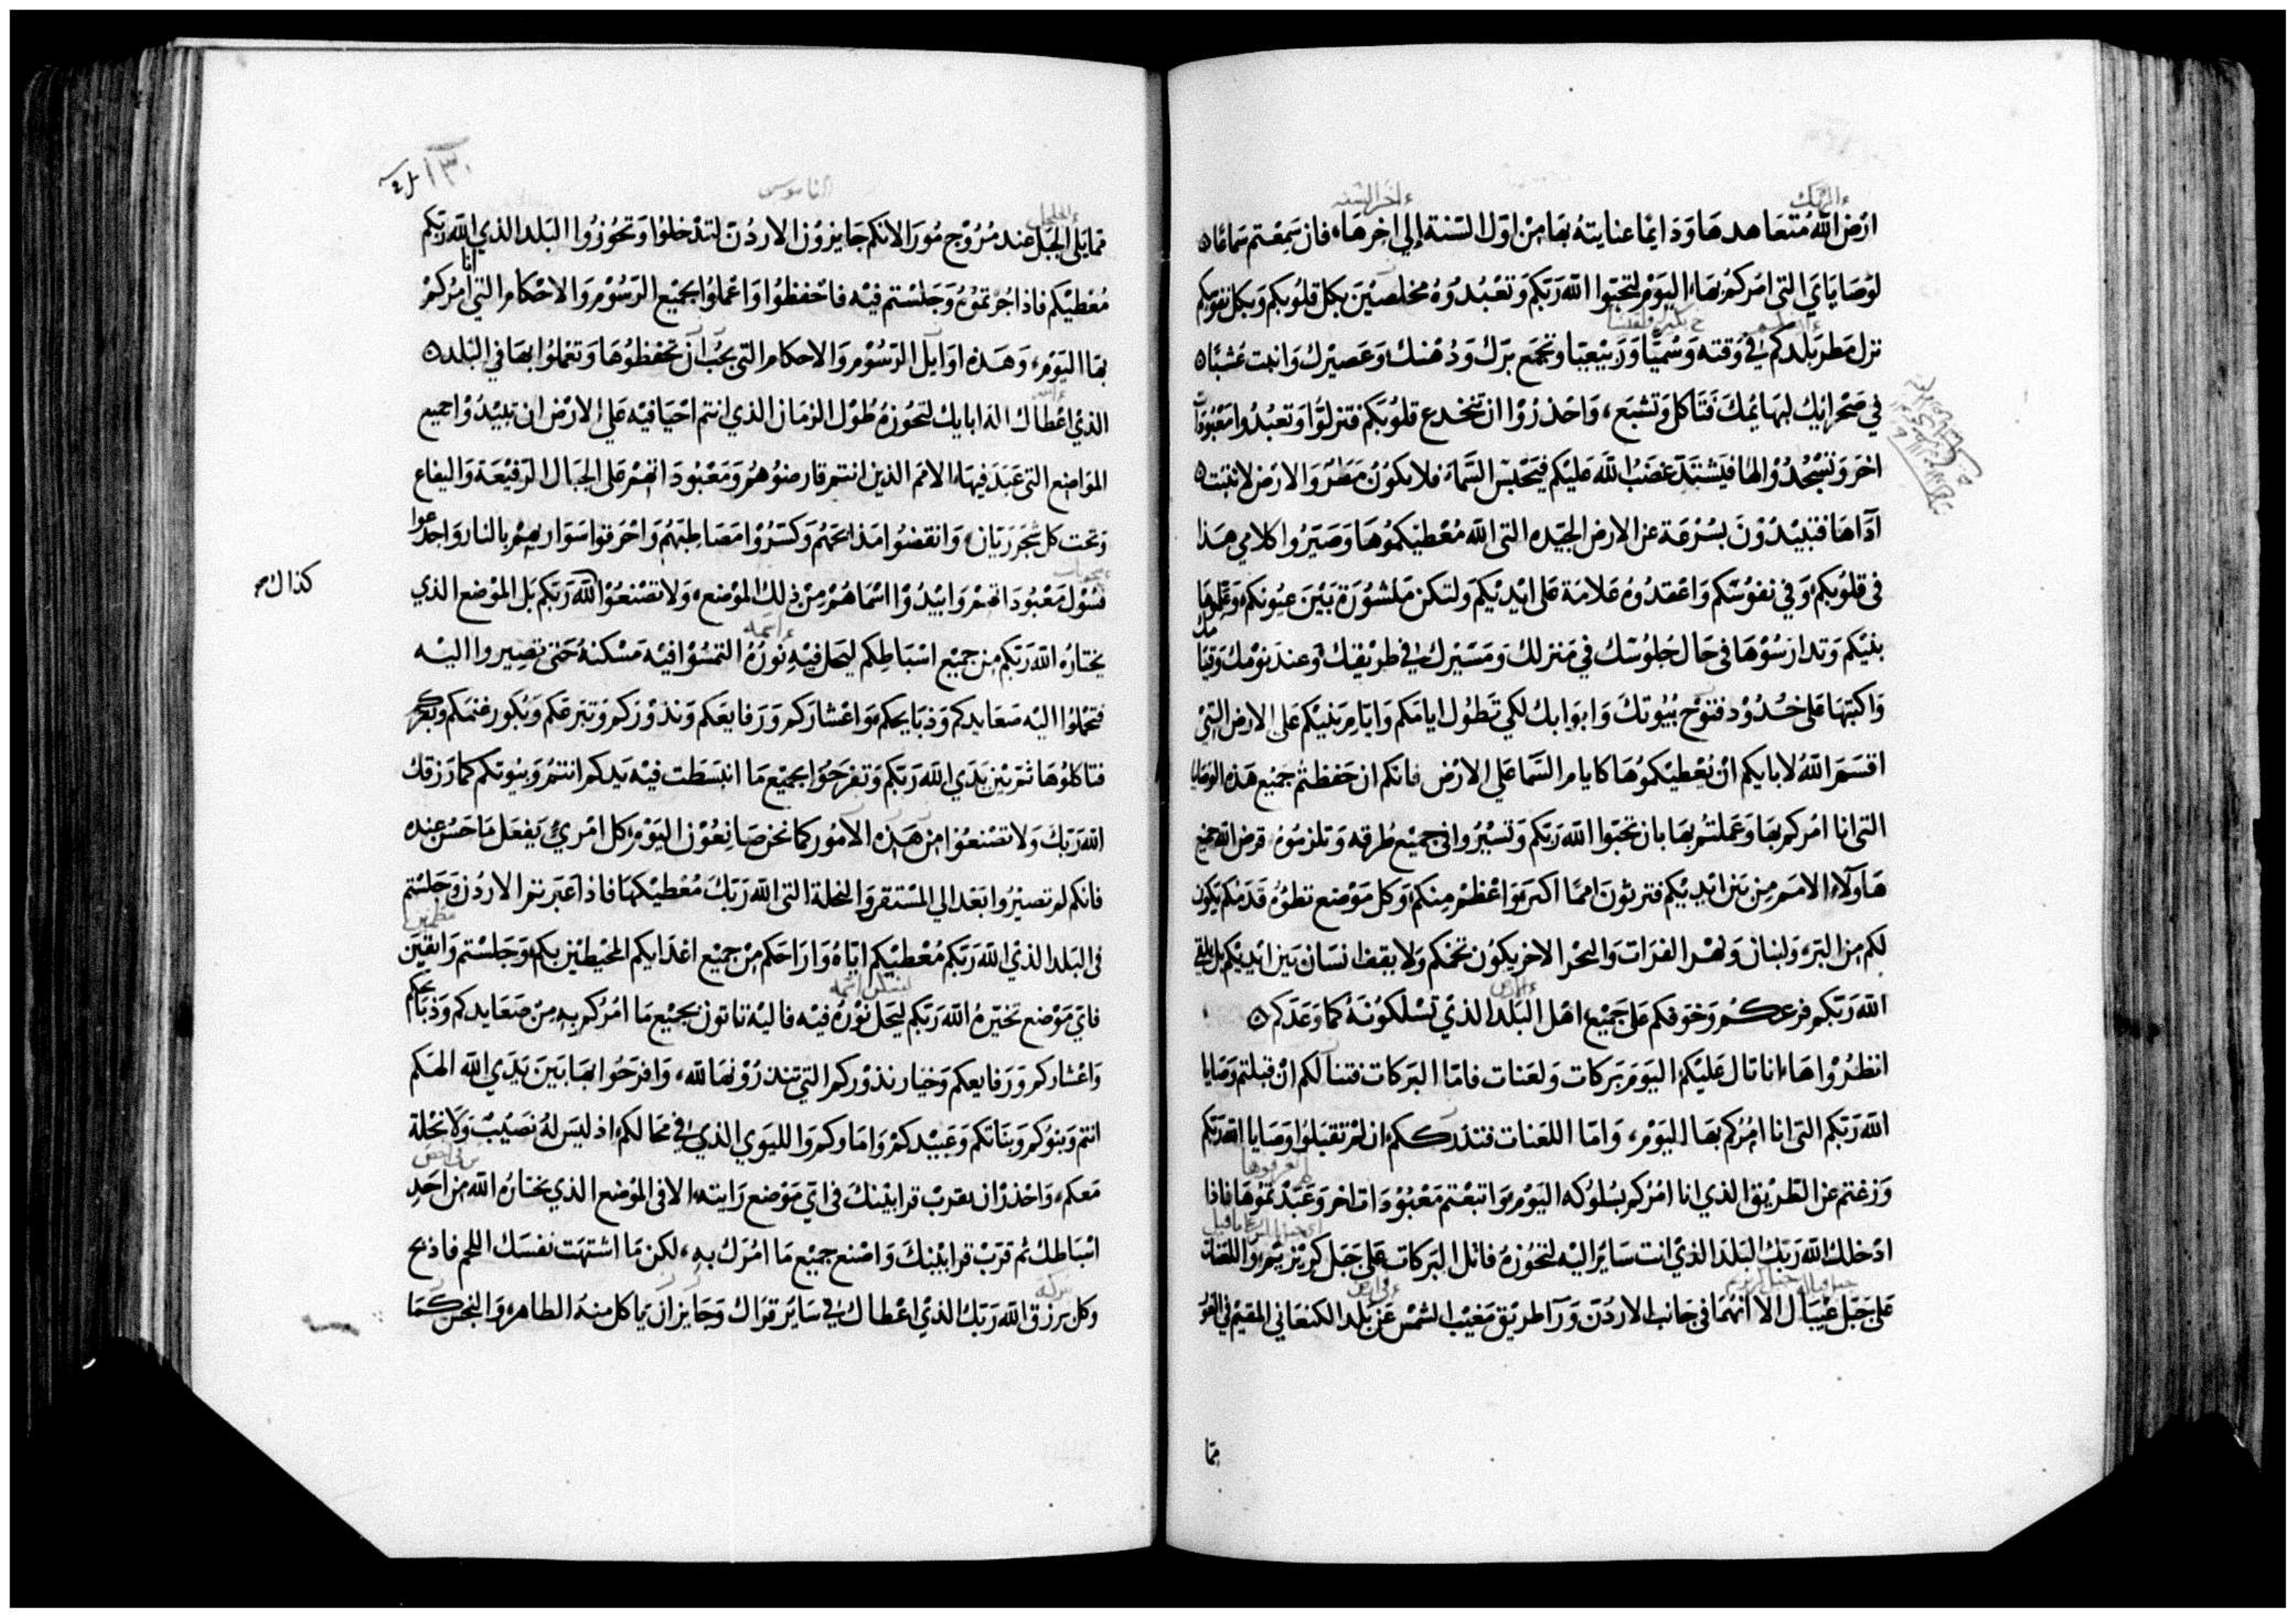 ارض الله متعاهدها ودايما عنايته بها من اول السنة الي اخرها، فان سمعتم سماعا
لوصاياي التي امركم بها اليوم لتحبوا الله ربكم وتعبدوه مخلصين بكل قلوبكم وبكل نفوسكم
نزل مطر بلدكم في وقته وسميا وربيعيا وتجمع برك ودهنك وعصيرك وانبت عشبا
في صحرايك لبهايمك فتاكل وتشبع، واحذروا ان تنخدع قلوبكم فتزلوا وتعبدوا معبودات
اخر وتسجدوا لها فيشتد غضب الله عليكم فيحبس السماء فلا يكون مطر والارض لا تنبت
آداها فتبيدون بسرعة عن الارض الجيده التي الله معطيكموها وصيروا كلامي هذا
في قلوبكم وفي نفوسكم واعقدوه علامة على ايديكم ولتكن منشورة بين عيونكم وعلموها
بنيكم وتدارسوها في حال جلوسك في منزلك ومسيرك في طريقك وعند نومك وقيامك
واكتبها على خدود فتوح بيوتك وابوابك لكي تطول ايامكم وايام بنيكم على الارض التي
اقسم الله لابايكم ان يعطيكموها كايام السما على الارض فانكم ان حفظتم جميع هذه الوصايا
التي انا امركم بها وعملتم بها بان تحبوا الله ربكم وتسيروا في جميع طرقه وتلزموه، قرض الله جميع
هاولاء الامم من بين ايديكم فترثون امما اكبر واعظم منكم، وكل موضع تطؤه قدمكم يكون
لكم من البر، ولبنان ونهر الفرات والبحر الاخر يكون تخمكم ولا يقف انسان بين ايديكم بل يلقي
الله ربكم فزعكم وخوفكم على جميع اهل البلد الذي تسلكونه كما وعدكم
انظروا ها انا تال عليكم اليوم بركات ولعنات فاما البركات فتنالكم ان قبلتم وصايا
الله ربكم التي انا امركم بها اليوم، واما اللعنات فتدرككم ان لم تقبلوا وصايا الله ربكم
وزغتم عن الطريق الذي انا امركم بسلوكه اليوم واتبعتم معبودات اخر وعبدتموها فاذا
ادخلك الله ربك البلد الذي انت ساير اليه لتحوزه فاتل البركات على جبل كريزيم واللعنات
على جبل عيبال الا انهما في جانب الاردن ورآ طريق مغيب الشمس عن بلد الكنعاني المقيم في الغور
مما
الناموس
مما يلي الجبل عند مروج مورا لانكم جايزون الاردن لتدخلوا وتحوزوا البلد الذي الله ربكم
معطيكم فاذا حزتموه وجلستم فيه فاحفظوا واعملوا بجميع الرسوم والاحكام التي انا امركم
بها اليوم، وهذه اوايل الرسوم والاحكام التي يجب ان تحفظوها وتعملوا بها في البلد
الذي اعطاك اله ابايك لتحوزه طول الزمان الذي انتم احيا فيه على الارض ان تبيدوا جميع
المواضع التي عبد فيها الامم الذين انتم قارضوهم ومعبوداتهم على الجبال الرفيعة واليفاع
وتحت كل شجر ريان، وانقضوا مذابحهم وكسروا مصاطبهم واحرقوا سواريهم بالنار واجدعوا
فسول معبوداتهم وابيدوا اسماهم من ذلك الموضع، ولا تصنعوا لله ربكم بل الموضع الذي
يختاره الله ربكم من جميع اسباطكم ليحل فيه نوره التمسوا فيه مسكنه حتى تصيروا اليه
فتحملوا اليه صعايدكم وذبايحكم واعشاركم ورفايعكم ونذوركم وتبرعكم وبكور غنمكم وبقركم
فتاكلوها ثم بين يدي الله ربكم وتفرحوا بجميع ما انبسطت فيه يدكم انتم وبيوتكم كما رزقك
الله ربك ولا تصنعوا من هذه الامور كما نحن صانعون اليوم كل امري يفعل ما حسن عنده
فانكم لم تصيروا بعد الي المستقر والنحلة التي الله ربك معطيكها فاذا عبرتم الاردن وجلستم
في البلد الذي الله ربكم معطيكم اياه واراحكم من جميع اعدايكم المحيطين بكم وجلستم واثقين
فاي موضع تخيره الله ربكم ليحل نوره فيه فاليه تاتون بجميع ما امركم به من صعايدكم وذبايحكم
واعشاركم ورفايعكم وخيار نذوركم التي تنذرونها لله، وافرحوا بها بين يدي الله الهكم
انتم وبنوكم وبناتكم وعبيدكم واماوكم والليوي الذي في محالكم اذ ليس له نصيب ولا نحلة
معكم، واحذر ان تقرب قرابينك في اي موضع رايته، الا في الموضع الذي يختاره الله من احد
اسباطك ثم قرب قرابينك واصنع جميع ما امرك به، لكن ما اشتهت نفسك اللحم فاذبح
وكل برزق الله ربك الذي اعطاك في ساير قراك وجايز ان ياكل منه الطاهر والنجس كما